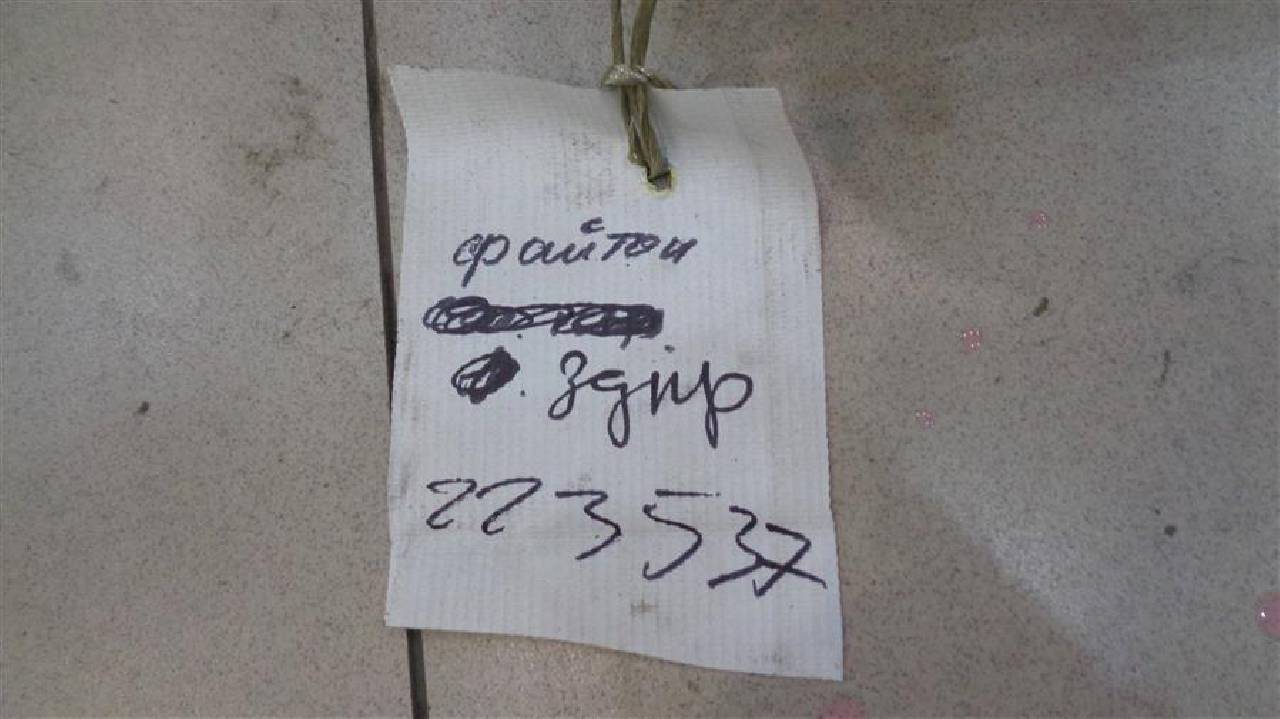 файтон
здпр
223537